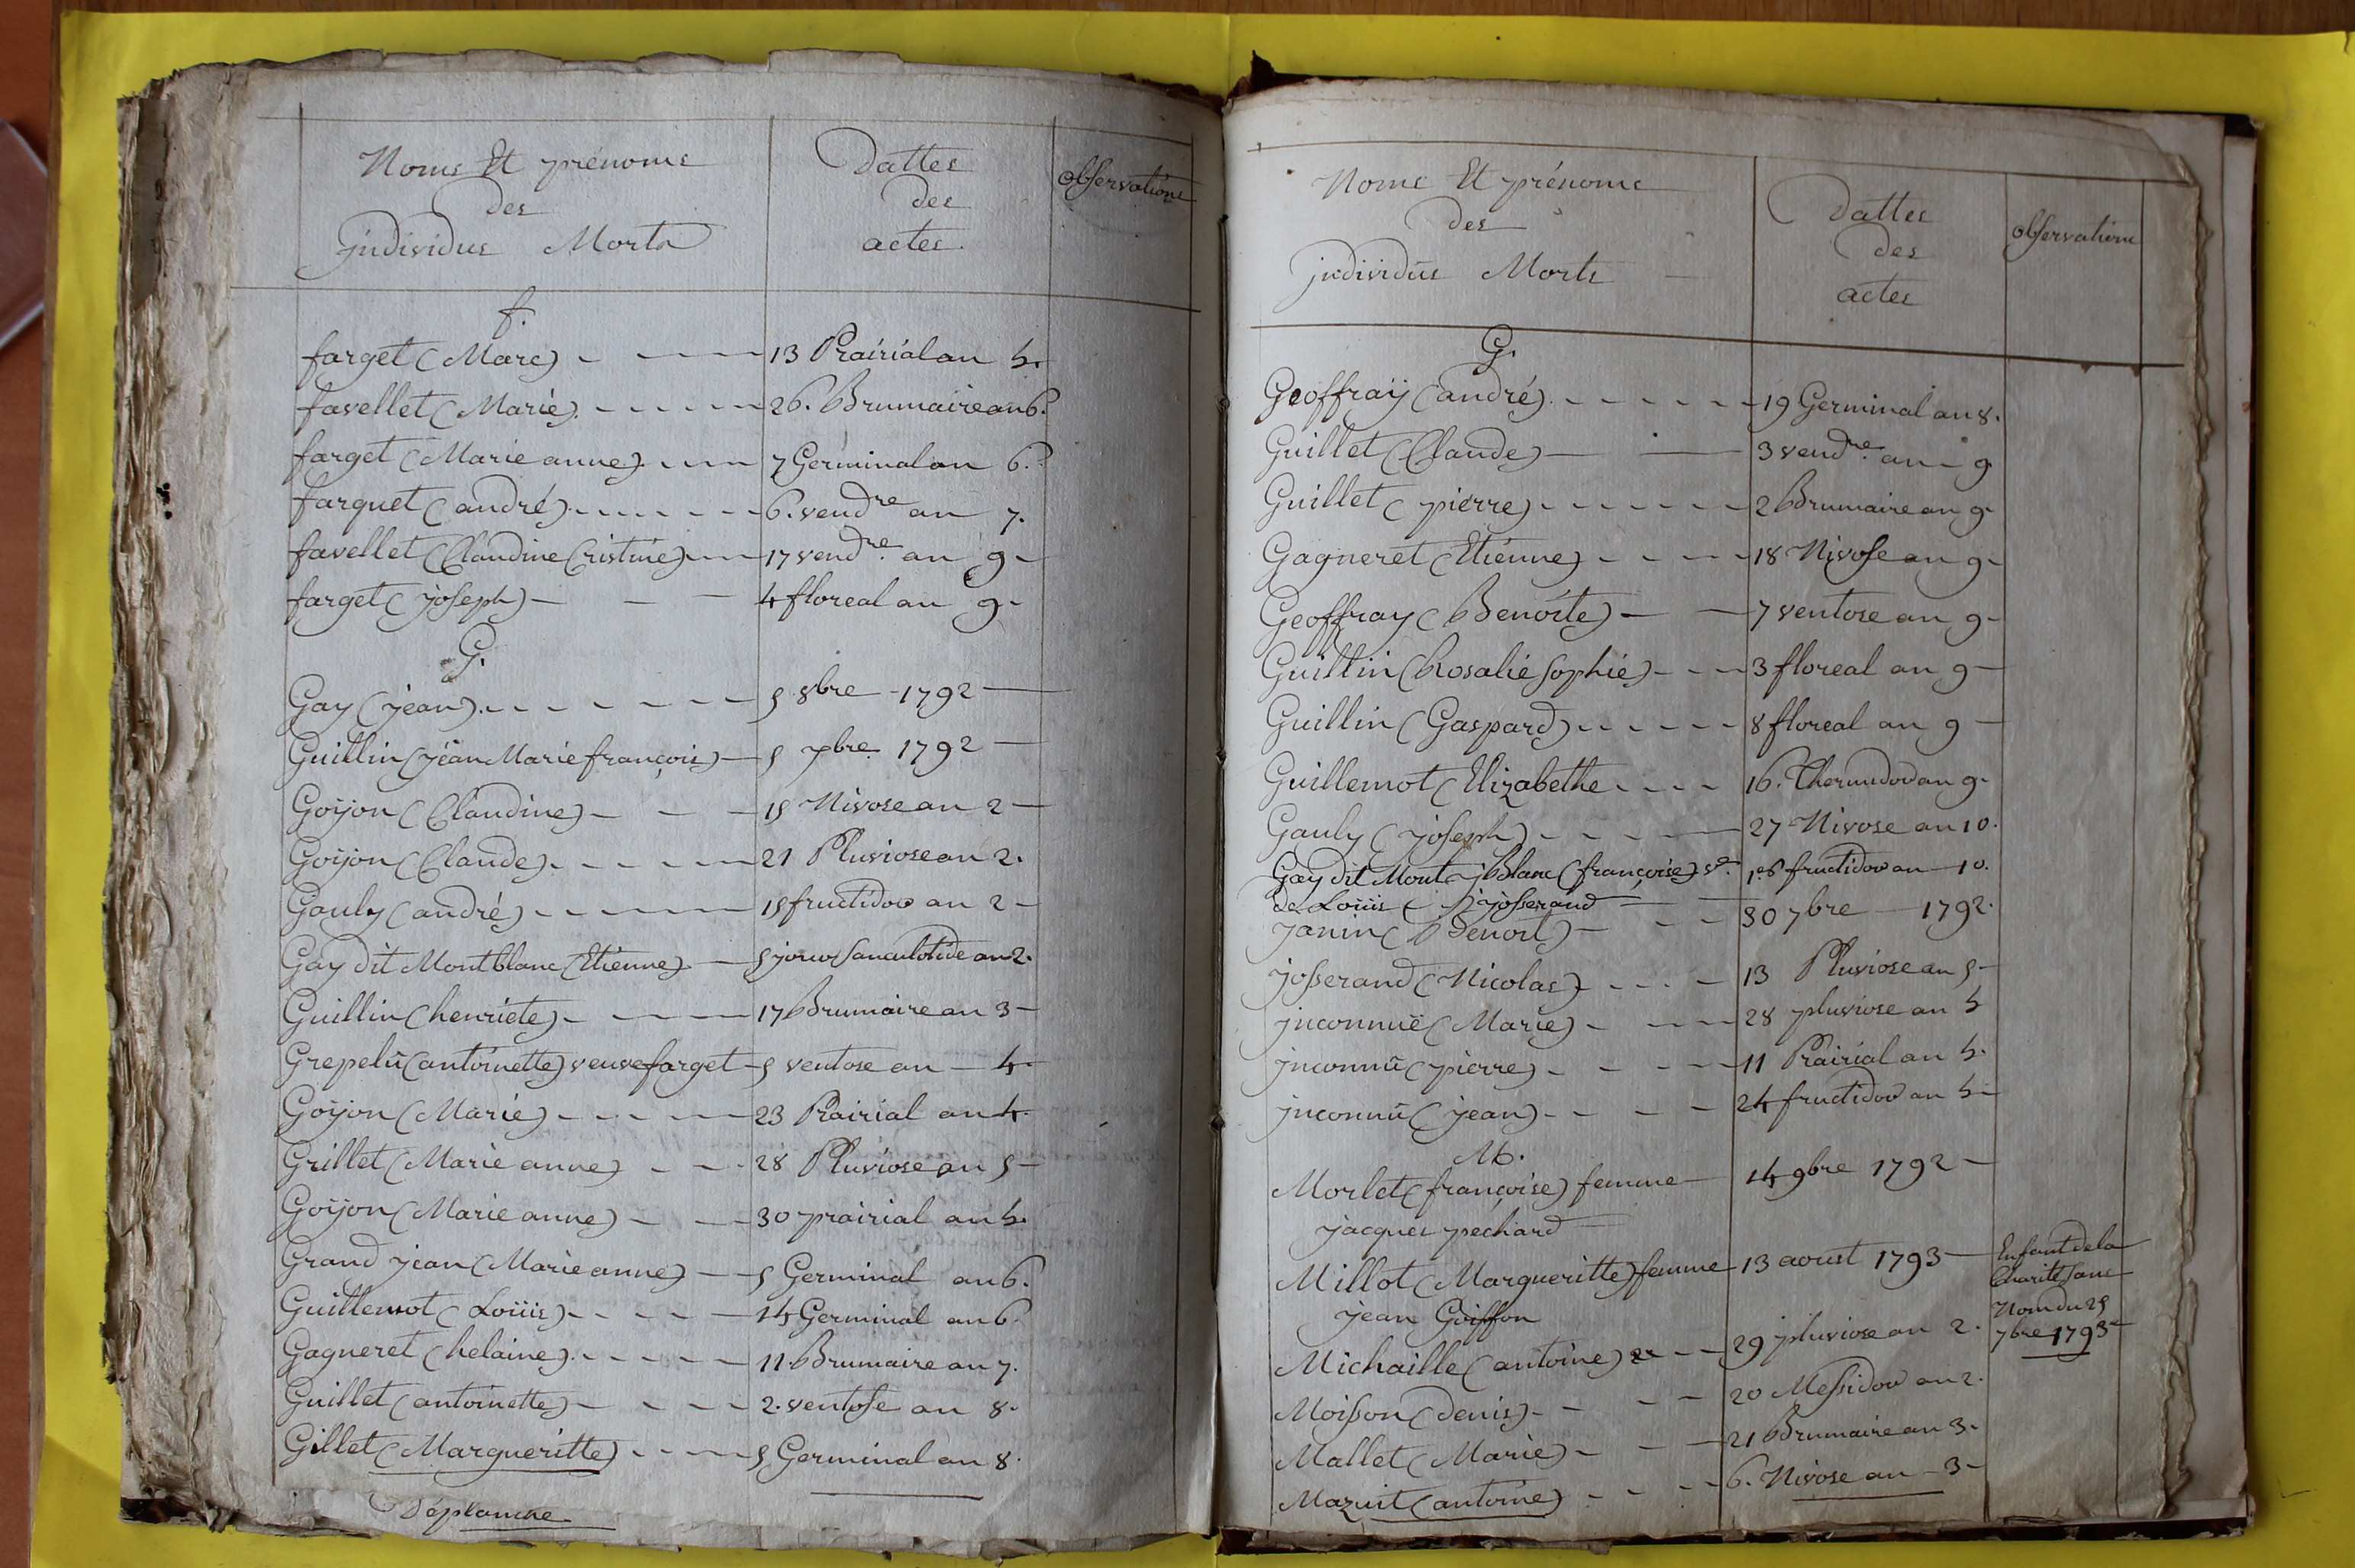 Noms Et prénoms
des
jndividus Morts
Dattes
des
actes.
observations
f.
farget (Marc) 13 Prairial an 5.
favellet (Marie) 26. Brumaire an 6.
farget (Marie anne) 7 Germinal an 6.
farguet (andré) 6. vendre an 7.
favellet (Claudine Cristine) 17 vendre an 9
farget (joseph) 4 floreal an 9
G.
Gay (jean) 5 8bre 1792
Guillin (jéan Marie françois) 5 7bre 1792
Goÿon (Claudine) 15 Nivose an 2
Goÿon (Claude) 21 Pluviose an 2.
Gauly (andré) 15 fructidor an 2
Gay dit Montblanc (Etienne) 5 jour sanculotide an 2.
Guillin (henriete) 17 Brumaire an 3
Grepelü (antoinette) veuve farget 5 ventose an 4.
Goÿon (Marie) 23 Prairial an 4.
Grillet (Marie anne) 28 Pluviose an 5
Goÿon (Marie anne) 30 prairial an 5.
Grand jean (Marie anne) 5 Germinal an 6.
Guillemot (Loüis) 14 Germinal an 6.
Gagneret (helaine) 11 Brumaire an 7.
Guillet (antoinette) 2. ventose an 8.
Gillet (Margueritte) 5 Germinal an 8.
Déplanche
Noms Et prénoms
des
jndividus Morts
Dattes
des
actes
observations
G.
Geoffraÿ (andré) 19 Germinal an 8.
Guillet (Claude) 3 vendre. an 9
Guillet (pierre) 2 Brumaire an 9
Gagneret (Etienne) 18 Nivose an 9
Geoffray (Benoite) 7 ventose an 9
Guillin (Rosalie Sophie) 3 floreal an 9
Guillin (Gaspard) 8 floreal an 9
Guillemot (Elizabethe 16. Thermidor an 9.
Gauly (joseph) 27 Nivose an 10.
Gay dit Mont Blanc (françoise) ve. fructidor an 10.
de Loüis josserand
janin (Benoit) 30 7bre 1792.
josserand (Nicolas) 13 Pluviose an 5
jnconnuë (Marie) 28 pluviose an 5
jnconnü (pierre) 11 Prairial an 5.
jnconnü (jean) 24 fructidor an 5
M.
Morlet (françoise) femme 14 9bre 1792
jacques pechard
Millot (Margueritte) femme 13 aoust 1793
jean Goiffon
Enfant de la
Charité sans
Nom du 25
7bre 1793
Michaille (antoine) 29 pluviose an 2.
Moisson (denis) 20 Messidor an 2.
Mallet (Marie) 21 Brumaire an 3.
Mazuit (antoine) 6. Nivose an 3